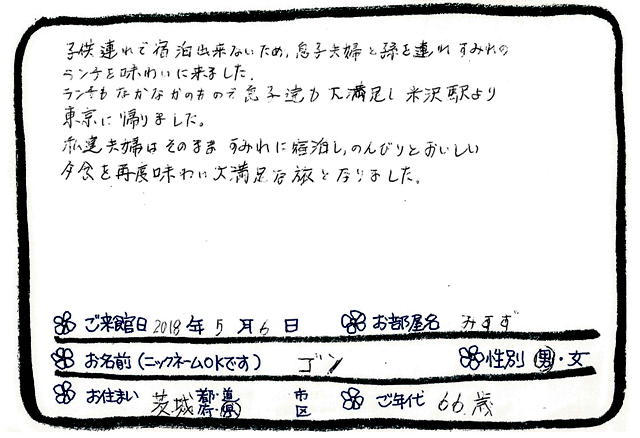 子供連れで宿泊出来ないため、息子夫婦と孫を連れすみれの
ランチを味わいに来ました。
ランチもなかなかのもので息子達も大満足し米沢駅より
東京に帰りました。
私達夫婦はそのまますみれに宿泊し、のんびりとおいしい
夕食を再度味わい大満足な旅となりました。
ご来館日 2018年5月6日 お部屋名 みすず
お名前(ニックネームOKです) ゴン 性別 男・女
お住まい 茨城 都・道府・県 市区 ご年代 66歳